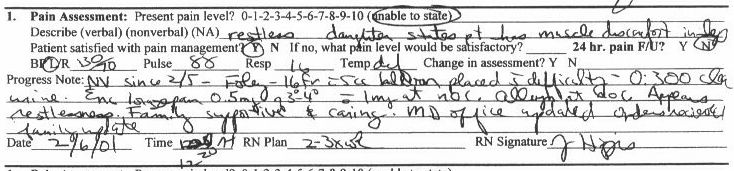 1. Pain Assessment: Present pain level? 0-1-2-3-4-5-6-7-8-9-10 (unable to state)
Describe (verbal) (nonverbal) (NA) restless daughter states pt has muscle discomfort in legs
Patient satisfied with pain management? Y N If no, what pain level would be satisfactory? 24 hr. pain F/U? Y N
BP L/R 130/70 Pulse 88 Resp 16 Temp def Change in assessment? Y N
Progress Note: NV since 2/5 - Foley - 16Fr c 5cc balloon placed c difficulty - 0:300 clear
urine. Enc lorazepam 0.5mg 3-4° 1mg at Appears
restlessness. Family supportive & caring. MD office updated orders received
family update
Date 2/6/01 Time 12:20 RN Plan 2-3x wk RN Signature